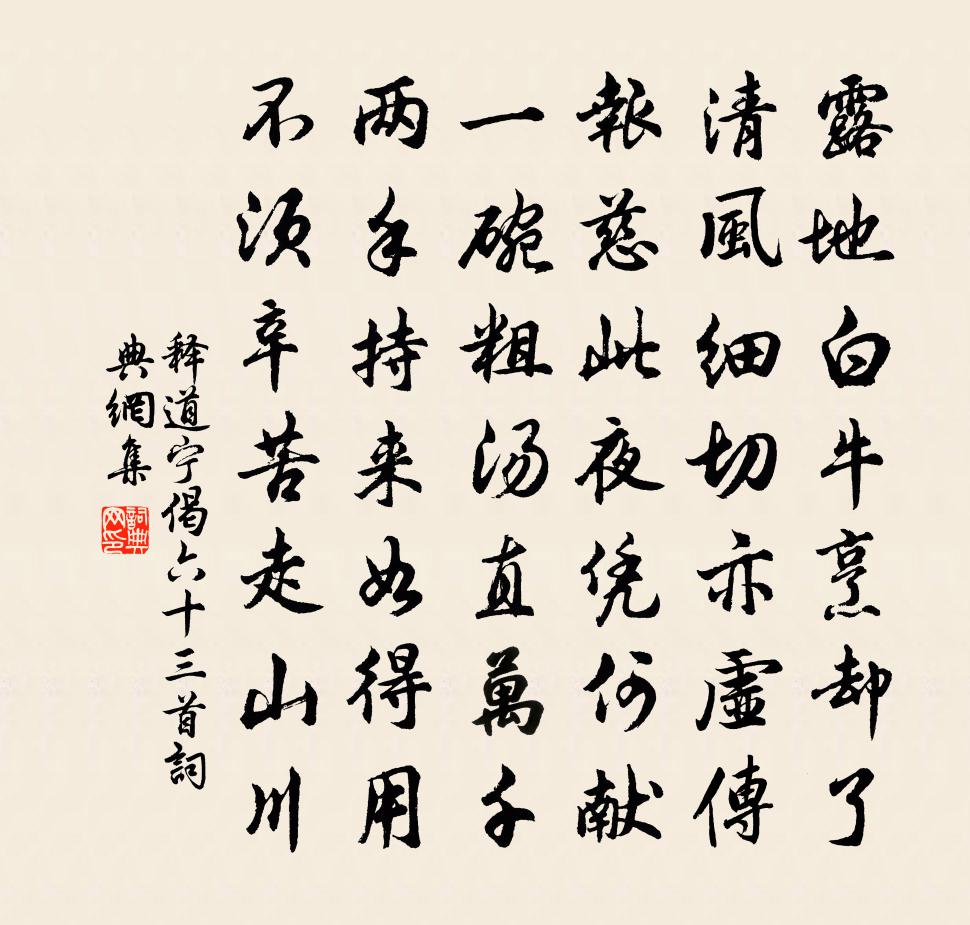 露地白牛烹却了
清風細切亦虛傳
報慈此夜凭何献
一碗粗汤直萬千
两手持来如得用
不须辛苦走山川
释道宁偈六十三首詞
典網集
詞典网印